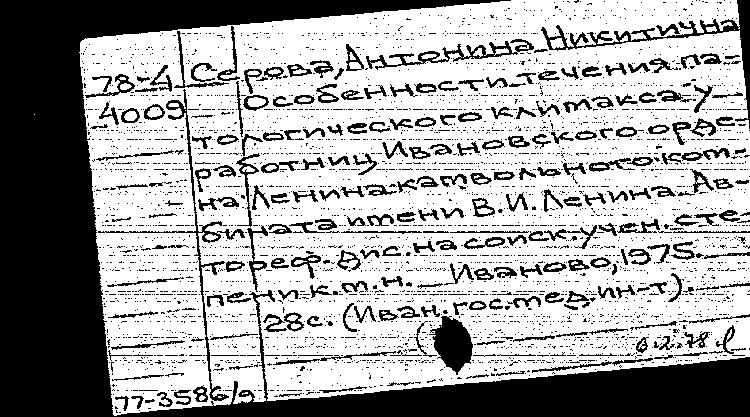 78-4 Серова, Антонина Никитична
4009 Особенности течения па-
тологического климакса у
работниц Ивановского орде-
на Ленина камвольного ком-
бината имени В.И. Ленина. Ав-
тореф. дис. на соиск. учен. сте-
пени к.м.н. Иваново, 1975.
28с. (Иван. гос. мед. ин-т).
6.2.78
77-3586/9